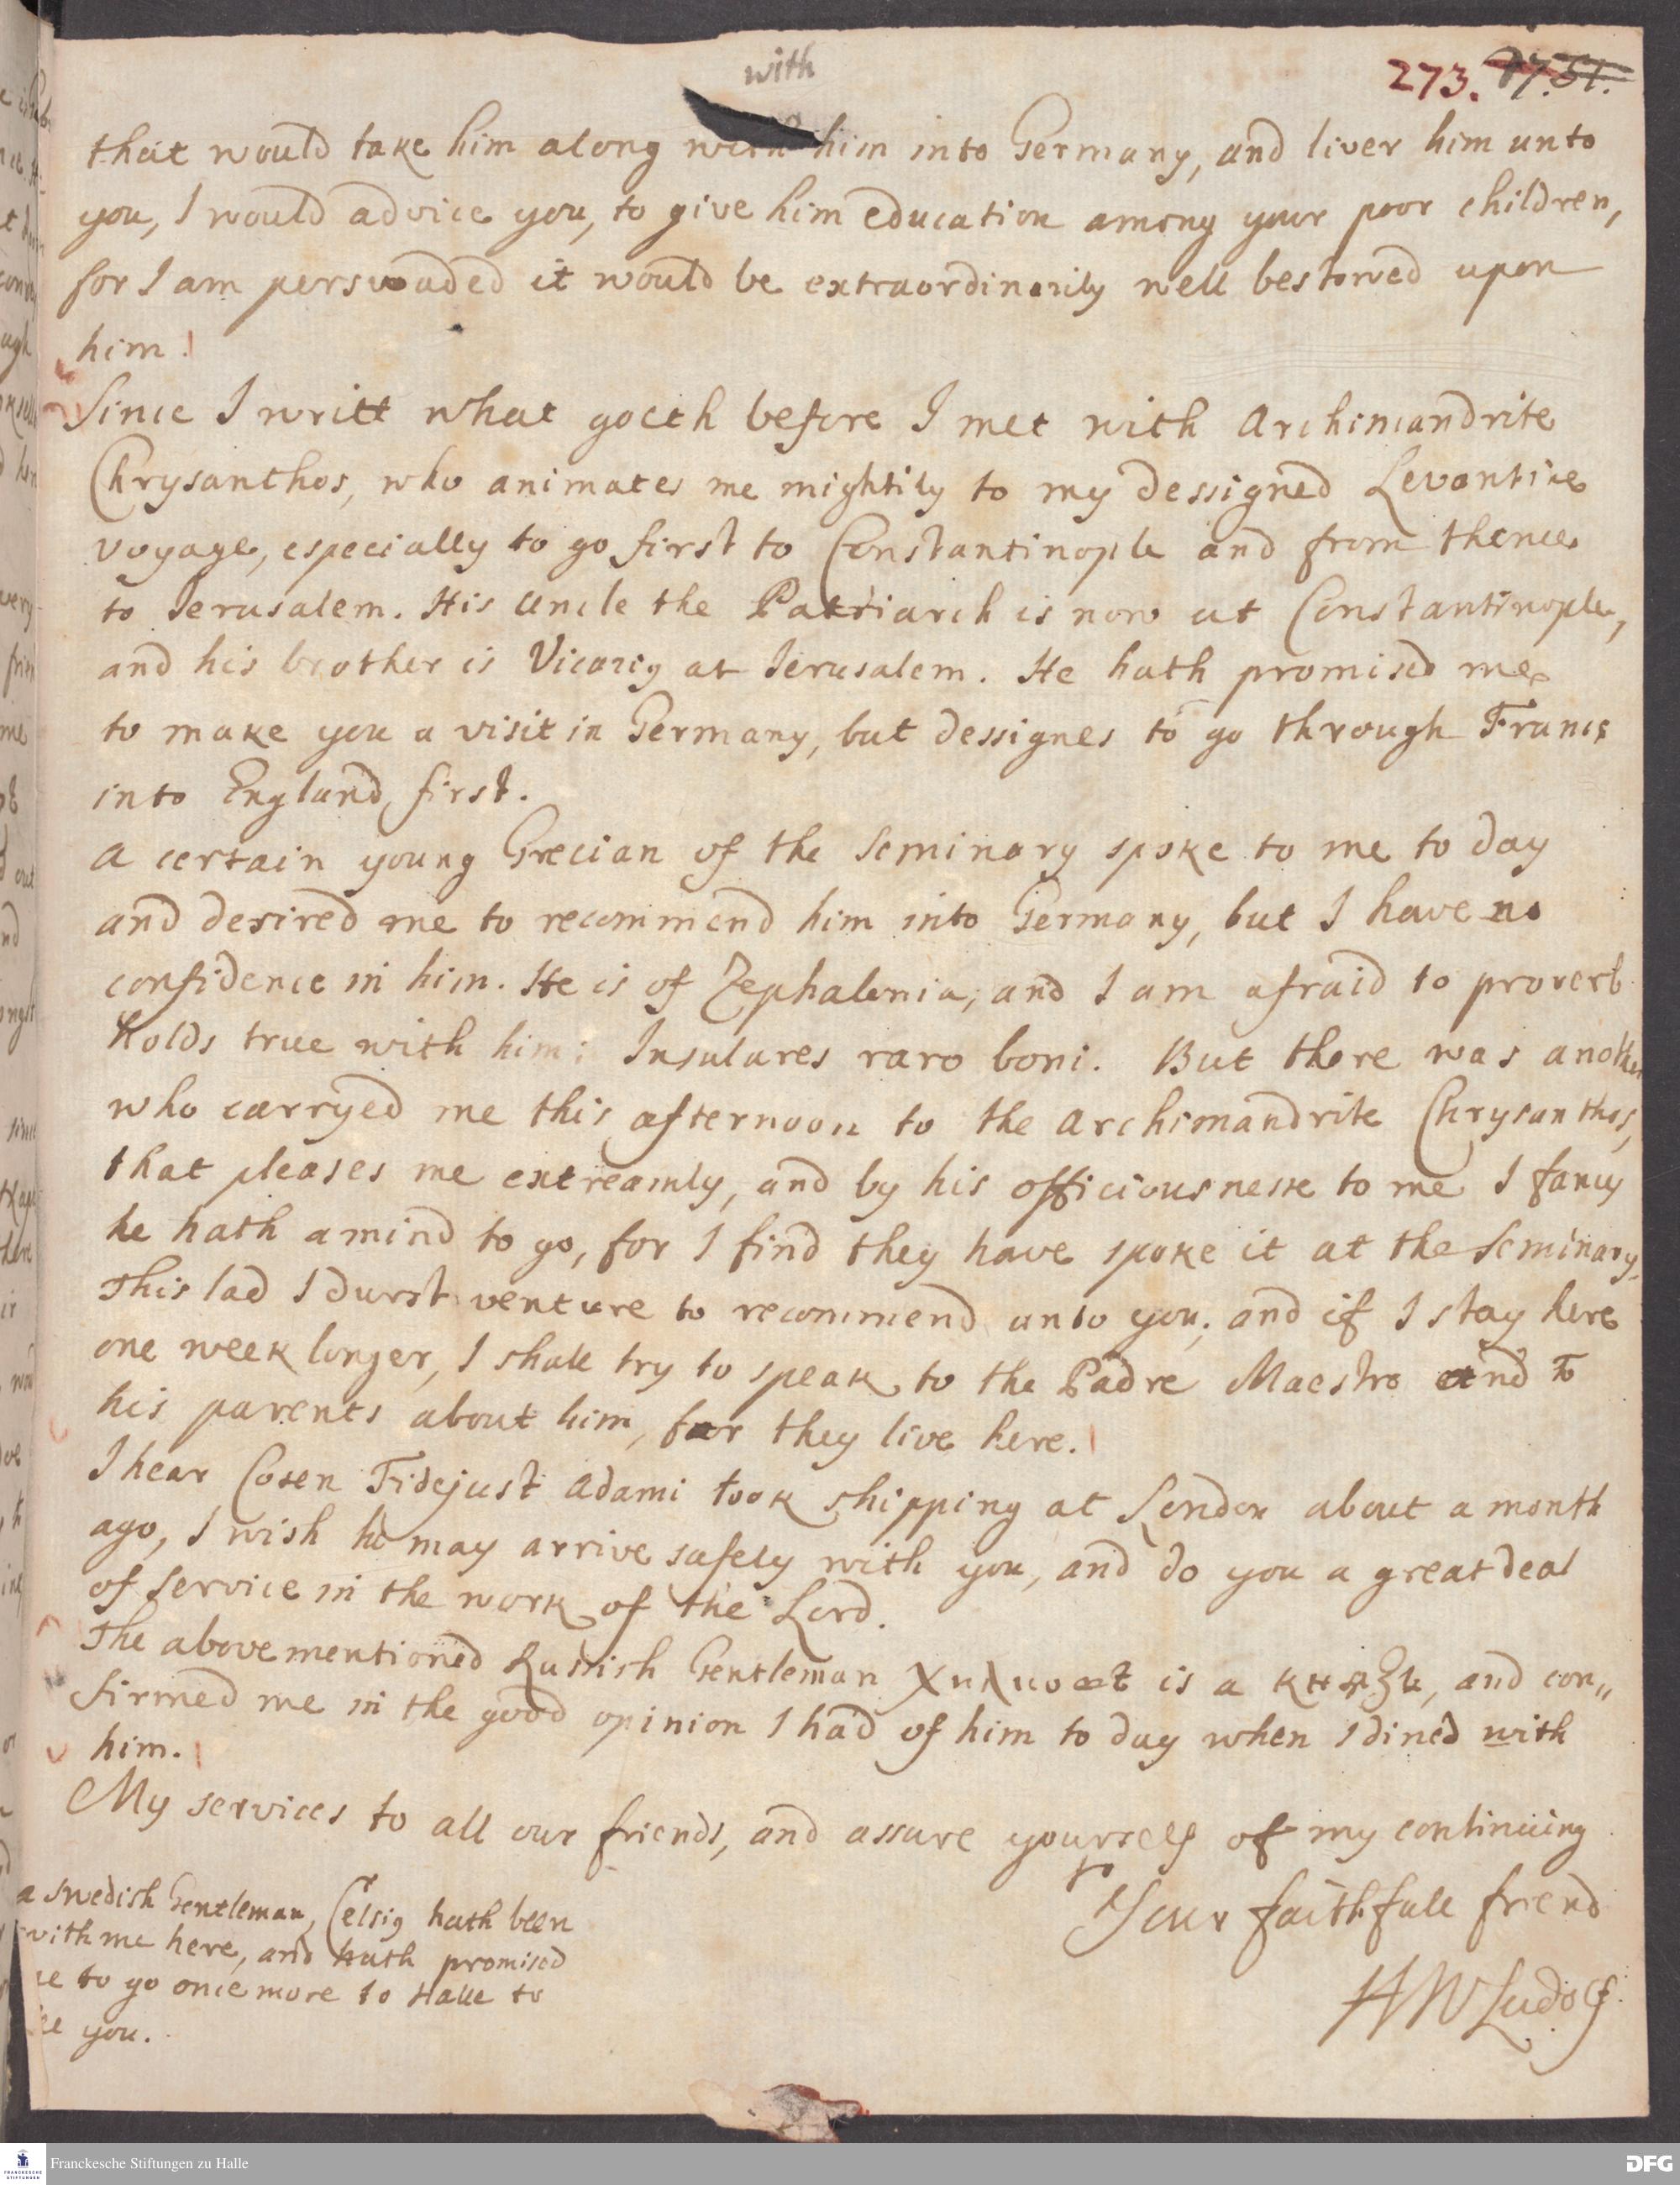 with
273. 17.51.
that would take him along with him into Germany, and liver him unto
you, I would advice you, to give him education among your poor children,
for I am perswaded it would be extraordinarily well bestowed upon
him.
Since I writt what goeth before I met with Archimandrite
Chrysanthos, who animates me mightily to my dessigned Levantine
voyage, especially to go first to Constantinople and from thence
to Jerusalem. His Uncle the Patriarch is now at Constantinople,
and his brother is Vicarig at Jerusalem. He hath promised me
to make you a visit in Germany, but dessignes to go through France
into England first.
A certain young Grecian of the Seminary spoke to me to day
and desired me to recommend him into Germany, but I have no
confidence in him. He is of Zephalonia, and I am afraid to proverb
holds true with him: Insulares raro boni. But there was another
who carryed me this afternoon to the Archimandrite Chrysanthos,
that pleases me extreamly, and by his officiousnesse to me I fancy
he hath a mind to go, for I find they have spoke it at the Seminary.
This lad I durst venture to recommend unto you, and if I stay here
one week longer, I shall try to speak to the Padre Maestro and to
his parents about him, for they live here.
I hear Cosen Fidejust Adami took shipping at London about a month
ago, I wish he may arrive safely with you, and do you a great deal
of service in the work of the Lord.
The abovementioned Russish Gentleman is a князь, and con„
firmed me in the good opinion I had of him to day when I dined with
him.
My services to all our friends, and assure yourself of my continuing
Your faithfull friend
HWLudolf.
a Swedish Gentleman, Celsig hath been
with me here, and hath promised
me to go once more to Halle to
see you.
Franckesche Stiftungen zu Halle
FRANCKESCHE STIFTUNGEN
DFG